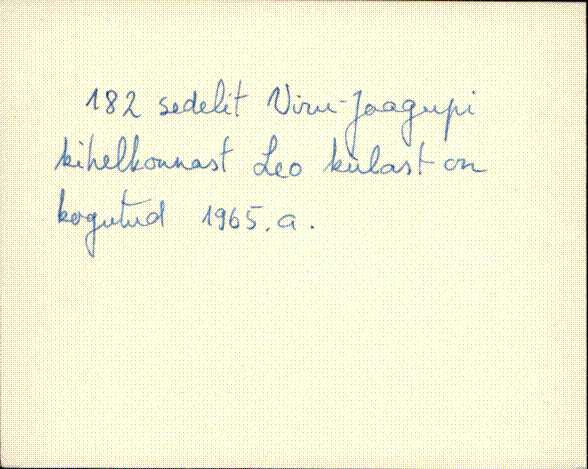 182 sedelit Viru-Jaagupi
kihelkonnast Leo külast on
kogutud 1965. a.